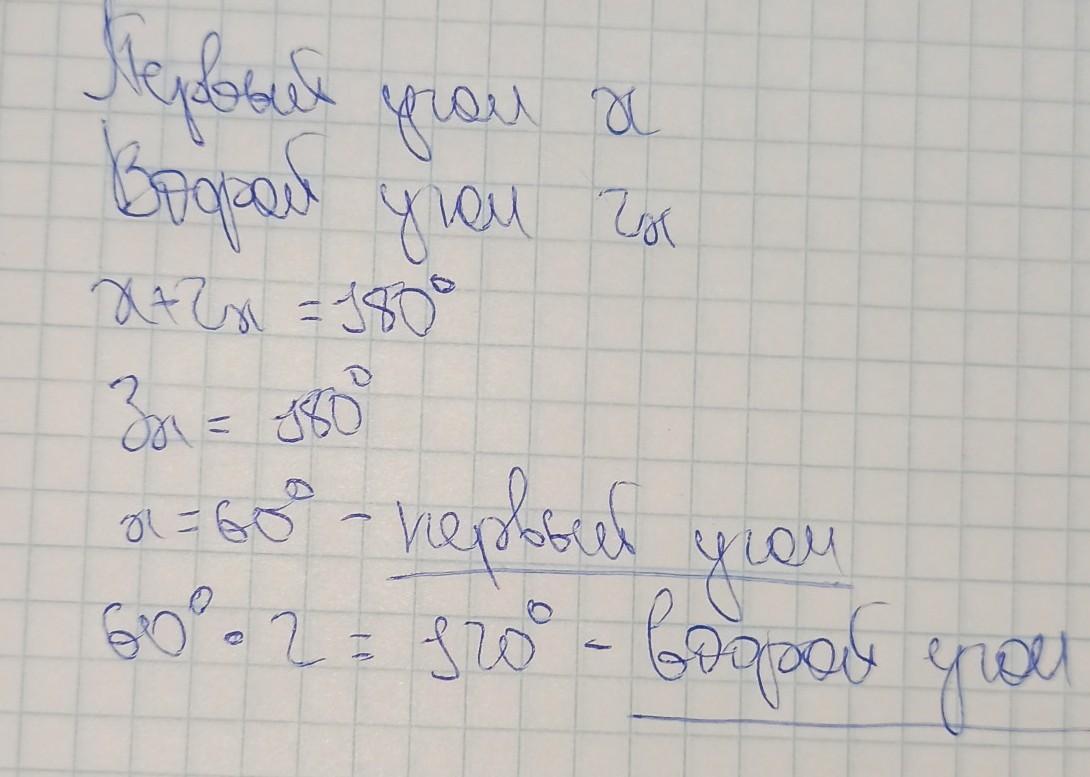 Первый угол x
Водрой угол 2x
x+2x = 180°
3x = 180°
x = 60° - первый угол
60° · 2 = 120° - водрой угол